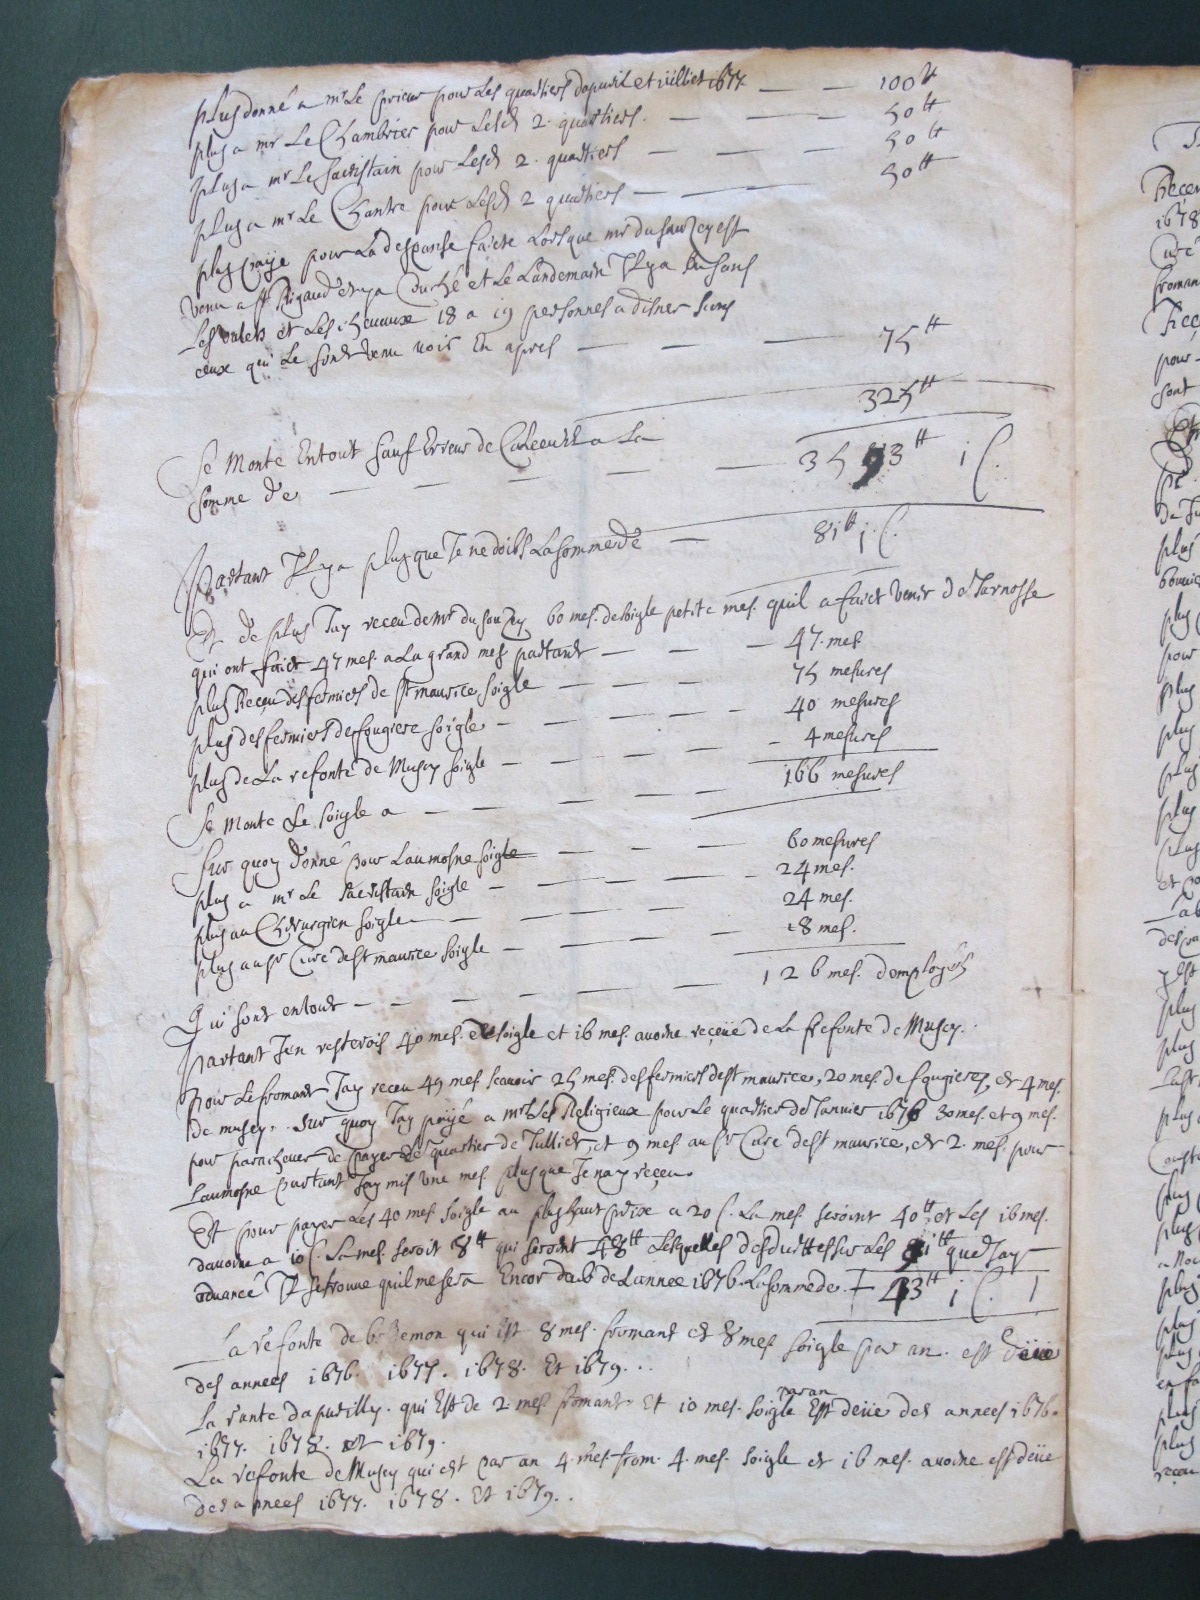 plus donné a mr Le prieur pour Les quartiers dapvril et iuilliet 1677 — — 100 tt
plus a mr Le Chambrier pour Lesd 2. quartiers. — — — 50 tt
plus a mr Le Sacristain pour Lesd 2. quartiers — — — 50 tt
plus a mr Le Chantre pour Lesd 2 quartiers — — — 50 tt
plus paÿe pour La despanse faicte Lorsque mr du Sauzey est
venu a St Rigaud et ya Couché et Le Landemain Il ya eu sans
Les valets et Les cheuaux 18 a 19 personnes a disner sans
ceux qui Le sont venu uoir En apres — — — 75 tt
325 tt
Se Monte Entout sauf Erreur de Calcul a La
somme de — — — — — — 3593 tt 1 s.
Partant Il ya plus que Je ne doibs La somme de — 81 tt j. s.
Et de plus Jay receu de Mr du Sauzey 60 mes. de soigle petite mes. quil a faict venir de Jarnosse
qui ont faict 47 mes. a La grand mes partant — — — 47. mes.
plus Receu des fermiers de St maurice soigle — — — 75 mesures
plus des fermiers de fougiere soigle — — — — 40 mesures
plus de La refonte de Musey soigle — — — — 4 mesures
Se Monte Le soigle a — — — — — 166 mesures
Sur quoy donné pour Laumosne soigle — — — 60 mesures
plus a mr Le Sacristain soigle — — — — 24 mes.
plus au Chirurgien soigle — — — — 24 mes.
plus au sr Curé de St maurice soigle — — — — 18 mes.
Qui sont entout — — — — — — 126 mes. demployés
Partant Jen resterois 40 mes. de soigle et 16 mes. auoine receüe de La Refonte de Musey.
Pour Le fromant Jay receu 49 mes scauoir 25 mes. des fermiers de St maurice, 20 mes. de fougieres, et 4 mes.
de musey. Sur quoy Jay payé a mrs Les Religieux pour Le quartier de Januier 1676 30 mes. et 9 mes.
pour parachever de payer Le quartier de Julliet, et 9 mes au sr Curé de St maurice, et 2. mes. pour
Laumosne partant Jay mis une mes. plus que Je nay receu.
Et pour payer Les 40 mes soigle au plus haut prix a 20 s. La mes. seroint 40 tt et Les 16 mes.
dauoine a 10 s. La mes. seroit 8 tt qui seroint 48 tt Lesquelles desduittes sur Les 81 tt que Jay
aduancé Il se trouue quil me sera Encor dub de Lannee 1676 La somme de. 43 tt j s. 1
La refonte de bezemon qui Est 8 mes. fromant et 8 mes soigle par an. est deüe
des annees 1676. 1677. 1678. Et 1679. . .
La rante dapvrilly. qui Est de 2 mes fromant Et 10 mes. soigle par an Est deüe des annees 1676.
1677. 1678. et 1679.
La refonte de Musey qui est par an 4. mes. from. 4. mes. soigle et 16 mes. auoine est deüe
des annees 1677. 1678. Et 1679. .